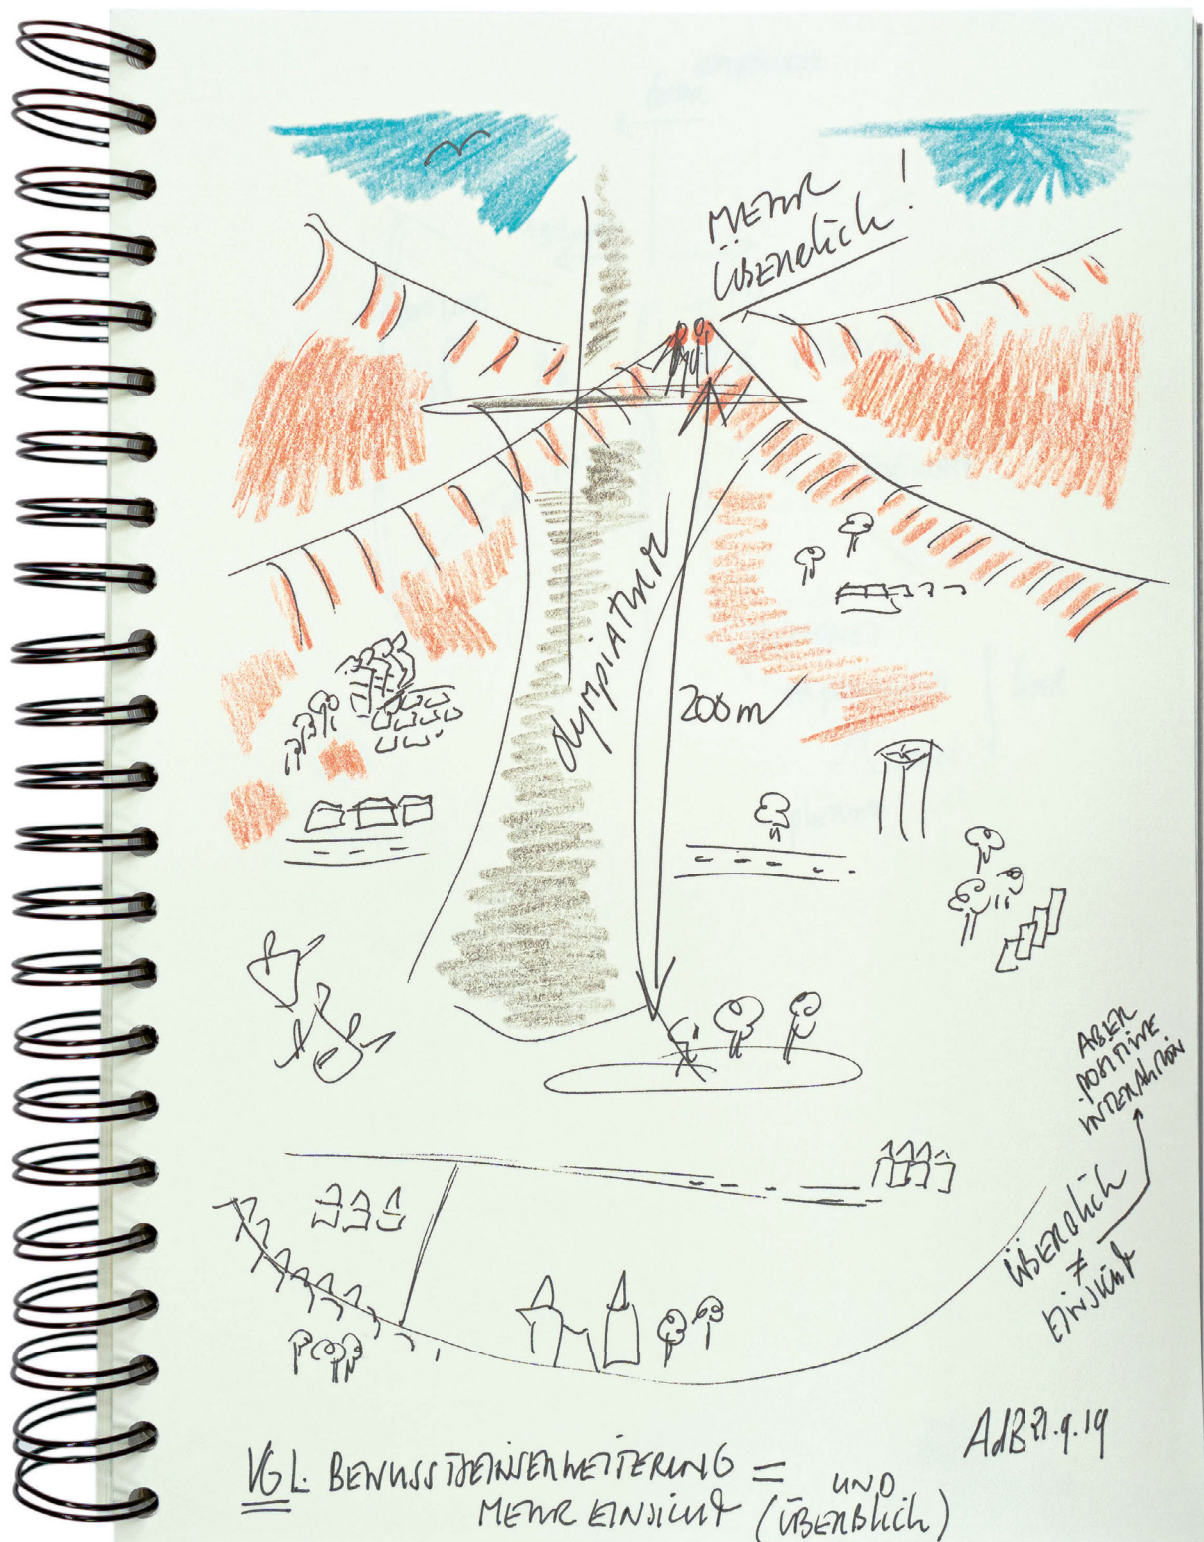 MEHR
ÜBERBlich!
OlympiATUR
200m
ABER
POSITIVE
INTERAKTION
ÜBERBlich
≠
EINSICHT
AdB 21.9.19
VGL. BEWUSSTSEINSERWEITERUNG =
MEHR EINSICHT UND (ÜBERBlich)